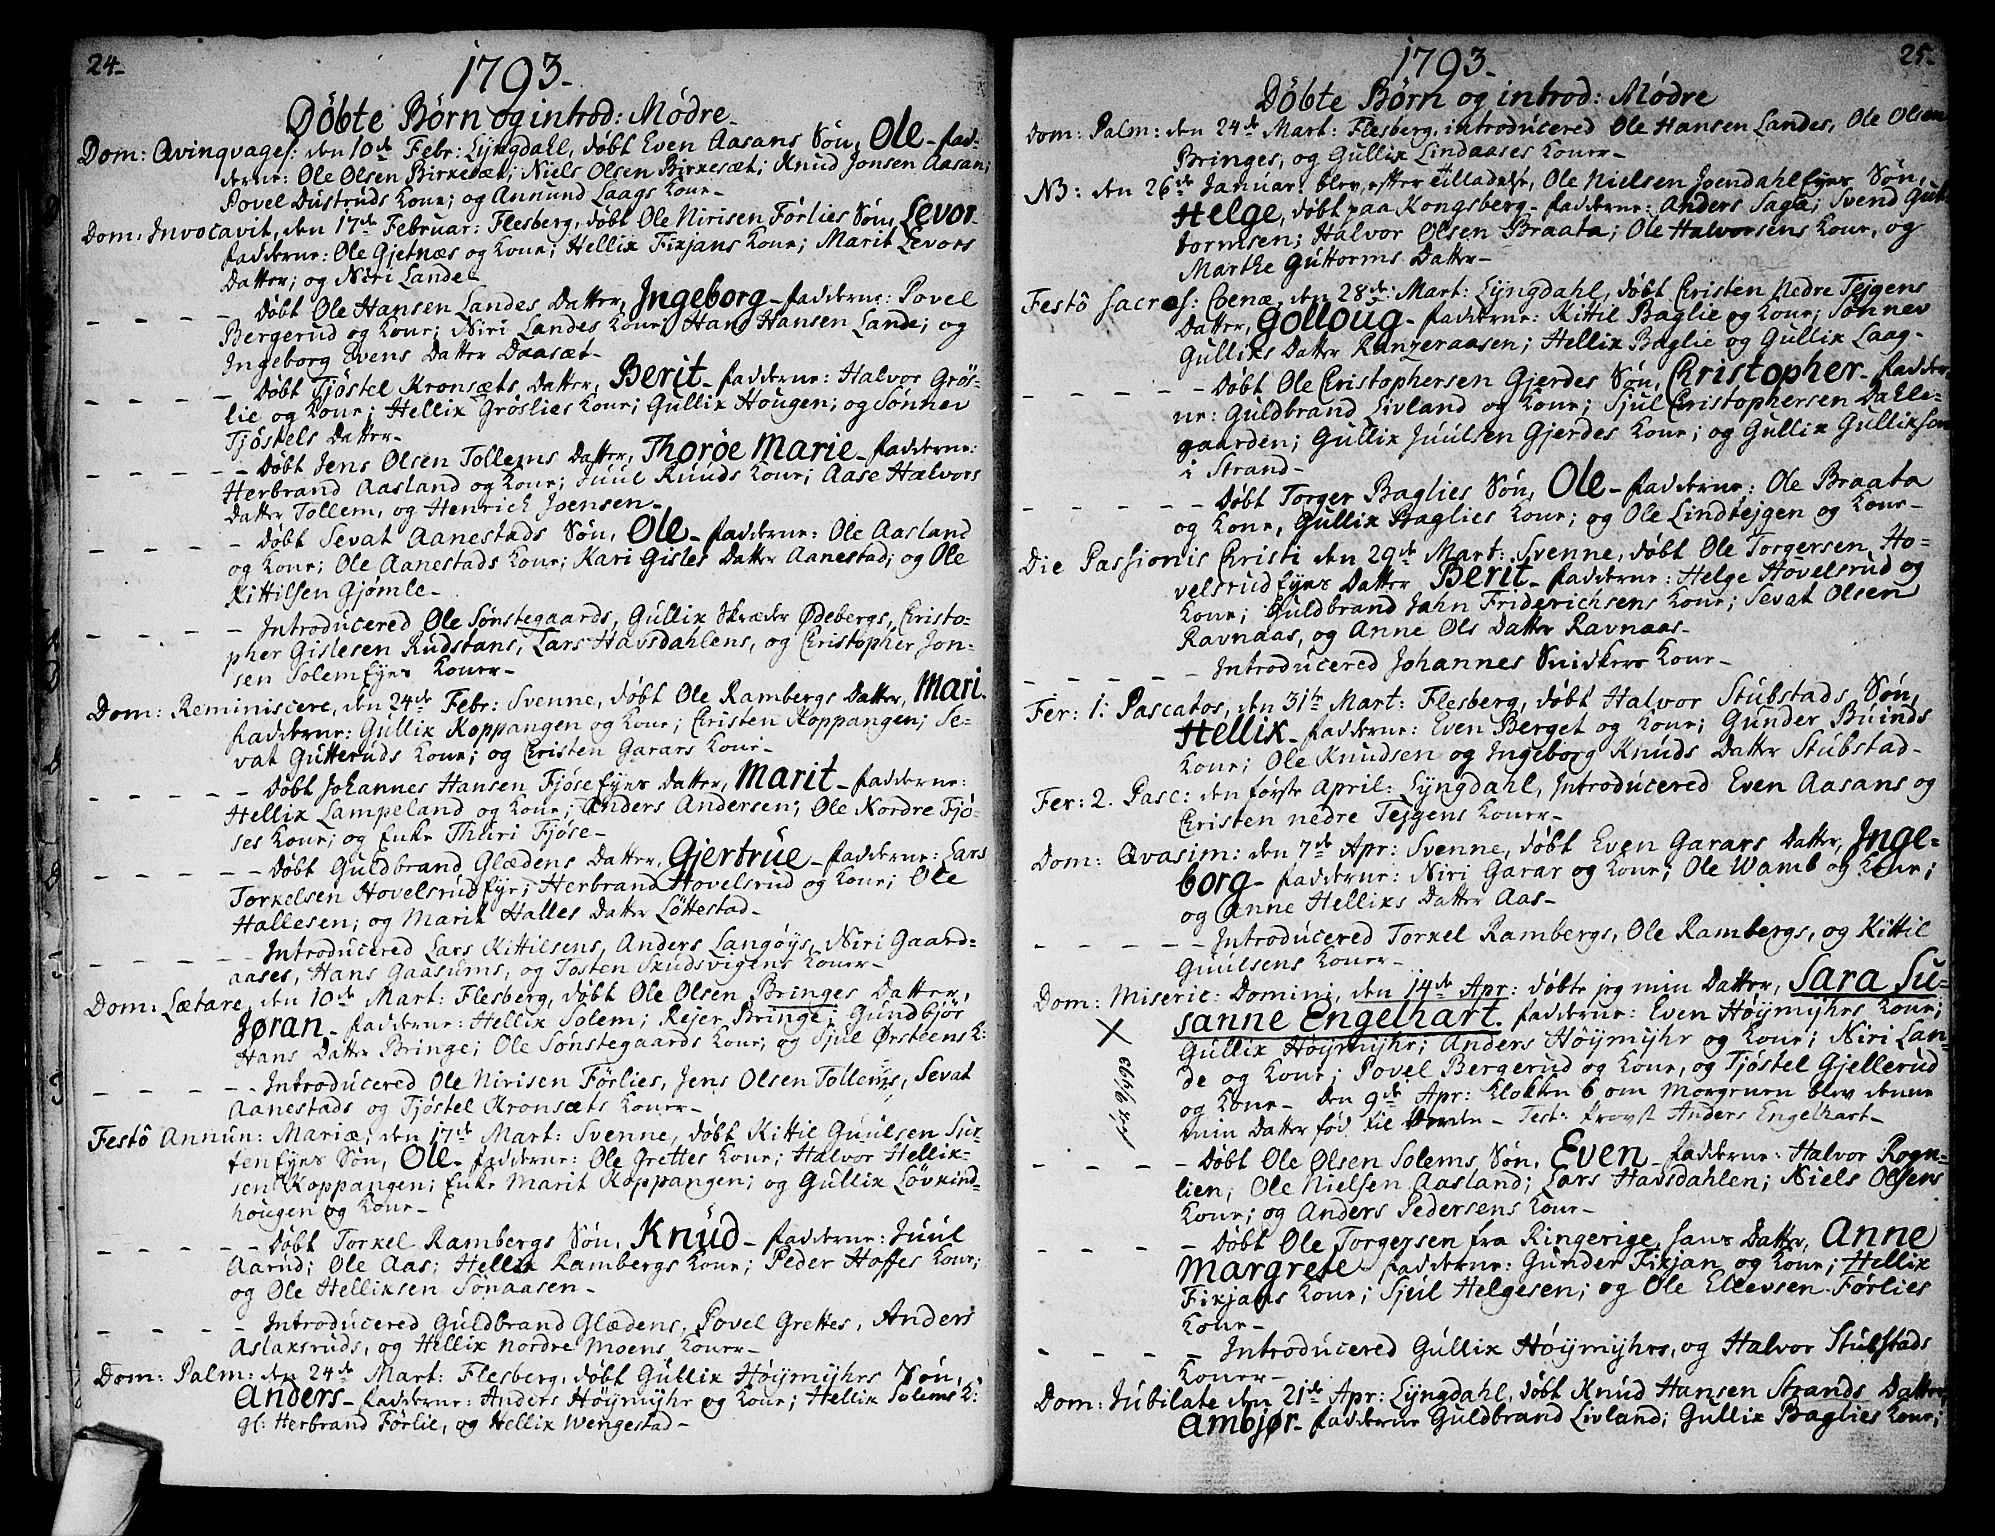 24.
1793.
Döbte Börn og introd: Mödre.
Dom: Qvinqvages: den 10de Febr: Lyngdahl, döbt Even Aasans Sön, Ole - fad-
derne: Ole Olsen Birkesæt; Niels Olsen Birkesæt; Knud Jonsen Aasan;
Povel Dustruds Kone; og Annund Laags Kone -
Dom: Invocavit, den 17de Februar: Flesberg, döbt Ole Nirisen Förlies Sön, Levor -
fadderne: Ole Gjetnæs og Kone; Hellix Fixjans Kone; Marit Levors
Datter; og Niri Lande -
- - - - - döbt Ole Hansen Landes Datter, Ingeborg - fadderne: Povel
Bergerud og Kone; Niri Landes Kone; Hans Hansen Lande; og
Ingeborg Evens Datter Daasæt -
- - - - - Döbt Tjöstel Kronsæts Datter, Berit - fadderne: Halvor Grös-
lie og Kone; Hellix Gröslies Kone; Gullix Hougen; og Sönnev
Tjöstels Datter -
- - - - - Döbt Jens Olsen Tollems Datter, Thoröe Marie - fadderne:
Herbrand Aasland og Kone; Juul Ruuds Kone; Aase Halvors
Datter Tollem, og Henrich Joensen -
- - - - - döbt Sevat Aanestads Sön, Ole - fadderne: Ole Aasland
og Kone; Ole Aanestads Kone; Kari Gisles Datter Aanestad; og Ole
Kittilsen Gjömle -
- - - - - Introducered Ole Sönstegaards, Gullix Skræder Ödebergs, Christo-
pher Gislesen Rudstans, Lars Havsdahlens, og Christopher Jon-
sen Solem Eyes Koner -
Dom: Reminiscere, den 24de Febr: Svenne, döbt Ole Rambergs Datter, Mari.
fadderne: Gullix Koppangen og Kone; Christen Koppangen; Se-
vat Gutteruds Kone; og Christen Garars Kone -
- - - - - döbt Johannes Hansen Fjöse Eyes Datter, Marit - fadderne:
Hellix Lampeland og Kone; Anders Andersen; Ole Nordre Fjö-
ses Kone; og Enke Thuri Fjöse -
- - - - - döbt Guldbrand Glædens Datter, Gjertrue - fadderne: Lars
Torkelsen Hovelsrud Eye; Herbrand Hovelsrud og Kone; Ole
Hallesen; og Marit Halles Datter Löttestad -
- - - - - Introducered Lars Kittilsens, Anders Langöys, Niri Gaard-
aases, Hans Gaasums, og Tosten Skudsvigens Koner -
Dom: Lætare, den 10de Mart: Flesberg, döbt Ole Olsen Bringes Datter,
Jöran - fadderne: Hellix Solem; Rejer Bringe; Gundbjör
Hans Datter Bringe; Ole Sönstegaards Kone; og Sjul Örsteens K:
- - - - - Introducered Ole Nirisen Förlies, Jens Olsen Tollems, Sevat
Aanestads og Tjöstel Kronsæts Koner -
Festô Annun: Mariæ, den 17de Mart: Svenne, döbt Kittil Guulsen Sur-
ten Eyes Sön, Ole - fadderne: Ole Grettes Kone; Halvor Hellix-
sen Koppangen; Enke Marit Koppangen; og Gullix Lövkind-
hougen og Kone -
- - - - - döbt Torkel Rambergs Sön, Knud - fadderne: Juul
Aarud; Ole Aas; Hellix Rambergs Kone; Peder Haffes Kone;
og Ole Helliksen Sönaasen -
- - - - - Introducered Guldbrand Glædens, Povel Grettes, Anders
Aslaksruds, og Hellix Nordre Moens Koner -
Dom: Palm: den 24de Mart: Flesberg, döbt Gullix Höymyhrs Sön,
Anders - fadderne: Anders Höymyhr og Kone; Hellix Solems K:
gl: Herbrand Förlie, og Hellix Wengestad -
25.
1793.
Döbte Börn og introd: Mödre
Dom: Palm: den 24de Mart: Flesberg, introducered Ole Hansen Landes, Ole Olsen
Bringes, og Gullix Lindaases Koner -
NB: den 26de Januar: blev, efter Tilladelse, Ole Nielsen Joendahl Eyes Sön,
Helge, döbt paa Kongsberg - fadderne: Anders Saga; Svend Gut-
tormsen; Halvor Olsen Braata; Ole Halvorsens Kone, og
Marthe Guttorms Datter -
Festô Sacræ: Coenæ, den 28de Mart: Lyngdahl, döbt Christen Nedre Tejgens
Datter, Golloug - fadderne: Kittil Baglie og Kone; Sönnev
Gulliks Datter Ranzeraasen; Hellix Baglie og Gullix Laag -
- - - - - Döbt Ole Christophersen Gjerdes Sön, Christopher - fadder-
ne: Guldbrand Livland og Kone; Sjul Christophersen Dahle-
gaarden; Gullix Juulsen Gjerdes Kone; og Gullix Gulliksen
i Strand -
- - - - - Döbt Torger Baglies Sön, Ole - fadderne: Ole Braata
og Kone, Gullix Baglies Kone; og Ole Lindtejgen og Kone -
Die Passionis Christi den 29de Mart: Svenne, döbt Ole Torgersen Ho-
velsrud Eyes Datter Berit - fadderne: Helge Hovelsrud og
Kone; Guldbrand Jahn Friderichsens Kone; Sevat Olsen
Ravnaas, og Anne Ols Datter Ravnaas -
- - - - - Introducered Johannes Snidkers Kone -
Fer: 1. Pascatos, den 31te Mart: Flesberg, döbt Halvor Stubstads Sön,
Hellix - fadderne: Even Berget og Kone; Gunder Buinds
Kone; Ole Knudsen og Ingeborg Knuds Datter Stubstad -
Fer: 2. Pasc: den förste April: Lyngdahl, Introducered Even Aasans og
Christen nedre Tejgens Koner -
Dom: Qvasim: den 7de Apr: Svenne, döbt Even Garars Datter, Inge-
borg - fadderne: Niri Garar og Kone; Ole Wamb og Kone;
og Anne Helliks Datter Aas -
- - - - - Introducered Torkel Rambergs, Ole Rambergs, og Kittil
Guulsens Koner -
Dom: Miseric: Domini, den 14de Apr: döbte jeg min Datter, Sara Su-
sanne Engelhart. fadderne: Even Höymyhrs Kone;
Gullix Höymyhr; Anders Höymyhr og Kone; Niri Lan-
de og Kone; Povel Bergerud og Kone, og Tjöstel Gjellerud
og Kone - den 9de Apr: Klokken 6 om Morgenen blev denne
min Datter föd til Verden - Test: Provst Anders Engelhart -
X
föd 9/4 1793
- - - - - Döbt Ole Olsen Solems Sön, Even - fadderne: Halvor Rogn-
lien; Ole Nielsen Aasland; Lars Havsdahlen; Niels Olsens
Kone; og Anders Pedersens Kone -
- - - - - Döbt Ole Torgersen fra Ringerige, hans Datter, Anne
Margrete - fadderne: Gunder Fixjan og Kone; Hellix
Fixjans Kone; Sjul Helgesen; og Ole Ellevsen Förlies
Kone -
- - - - - Introducered Gullix Höymyhrs, og Halvor Stubstads
Koner -
Dom: Jubilate den 21de Apr: Lyngdahl, döbt Knud Hansen Strands Datter
Ambjör - fadderne Guldbrand Livland; Gullix Baglies Kone;